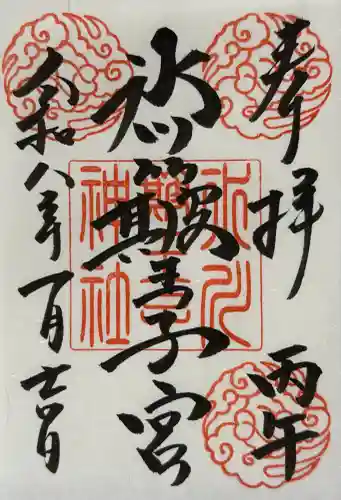 奉拝
丙午
氷川簸王子宮
令和八年一月吉日
氷川
神社